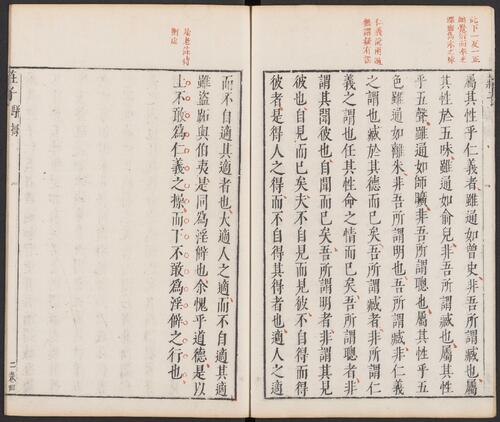 此下一反一正
屬其性乎仁義者雖通如曾史非吾所謂臧也屬
其性於五味雖通如俞兒非吾所謂臧也屬其性
乎五聲雖通如師曠非吾所謂聰也屬其性乎五
色雖通如離朱非吾所謂明也吾所謂臧非仁義
之謂也臧於其德而已矣吾所謂臧者非所謂仁
義之謂也任其性命之情而已矣吾所謂聰者非
謂其聞彼也自聞而已矣吾所謂明者非謂其見
彼也自見而已矣夫不自見而見彼不自得而得
彼者是得人之得而不自得其得者也適人之適
仁義說兩遍
而不自適其適者也夫適人之適而不自適其適
雖盜跖與伯夷是同為淫僻也余愧乎道德是以
上不敢為仁義之操而下不敢為淫僻之行也
莊子駢拇